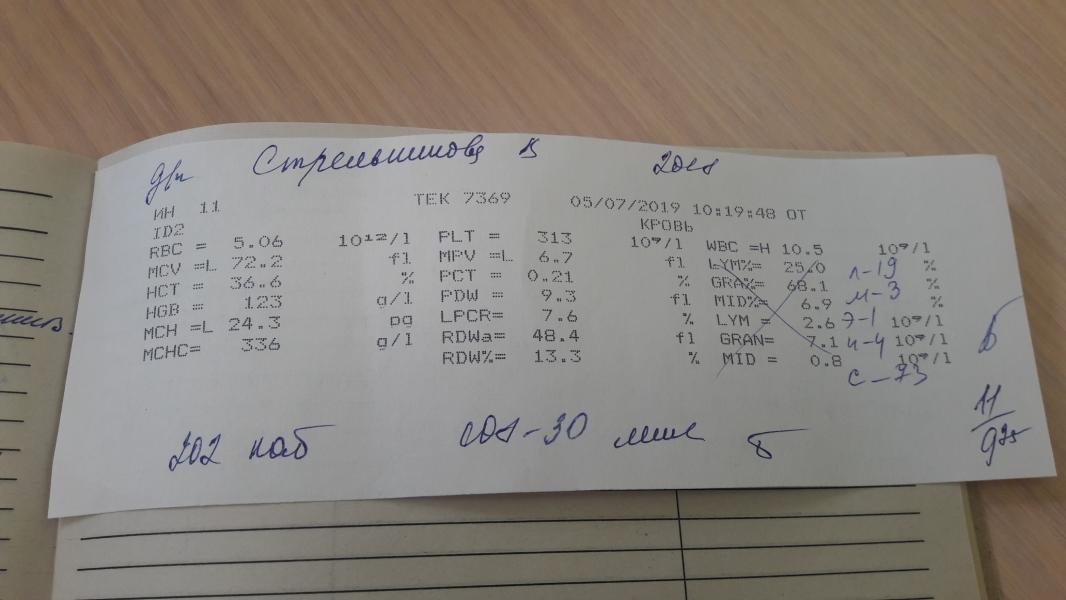 Стрельникова В
ИН 11 ТЕК 7369 05/07/2019 10:19:48 ОТ
ID2 КРОВЬ
RBC = 5.06 10¹²/l PLT = 313 10⁹/l WBC =H 10.5 10⁹/l
MCV =L 72.2 fl MPV =L 6.7 fl LYM%= 25.0 % л-19
HCT = 36.6 % PCT = 0.21 % GRA%= 68.1 % м-3
HGB = 123 g/l PDW = 9.3 fl MID%= 6.9 % э-1
MCH =L 24.3 pg LPCR= 7.6 % LYM = 2.6 10⁹/l п-4
MCHC= 336 g/l RDWa= 48.4 fl GRAN= 7.1 10⁹/l с-73
RDW%= 13.3 % MID = 0.8 10⁹/l
202 каб соэ-30 мм
11